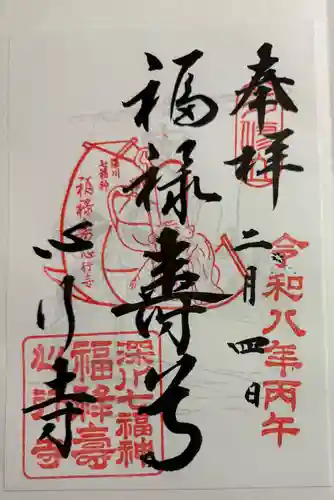 奉拝
令和八年丙午
二月四日
福禄寿尊
心行寺
深川
七福神
福禄寿
心行寺
深川七福神
福祿壽
心行寺